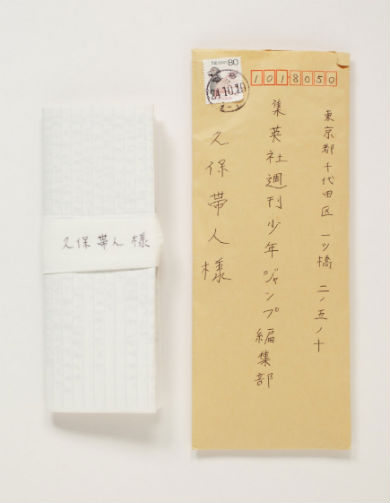 久保帯人様
80
24.10.10
1018050
東京都千代田区一ツ橋二ノ五ノ十
集英社週刊少年ジャンプ編集部
久保帯人様